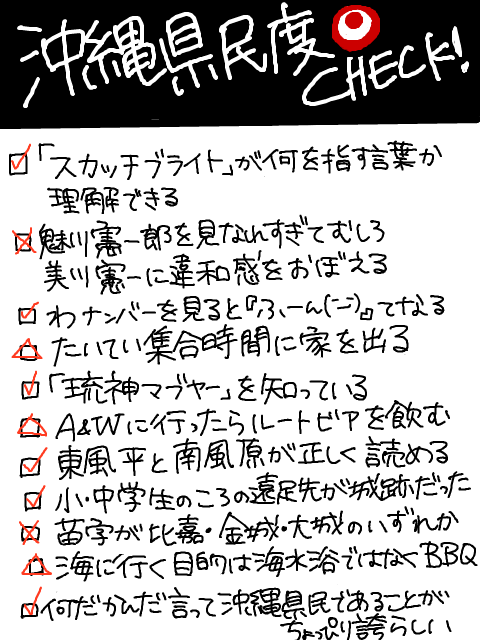 沖縄県民度
CHECK!
「スカッチブライト」が何を指す言葉か
理解できる
魅川憲一郎を見なれすぎてむしろ
美川憲一に違和感をおぼえる
わナンバーを見ると『ふーん(ニニ)』てなる
たいてい集合時間に家を出る
「琉神マブヤー」を知っている
A&Wに行ったらルートビアを飲む
東風平と南風原が正しく読める
小・中学生のころの遠足先が城跡だった
苗字が比嘉・金城・大城のいずれか
海に行く目的は海水浴ではなくBBQ
何だかんだ言って沖縄県民であることが
ちょっぴり誇らしい